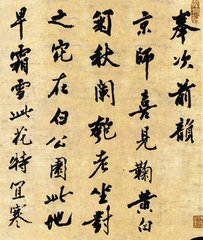 奉次前韻
京師喜見鞠黃白
菊秋闌老坐對
之宛在白公園此地
早霜雪此花特宜寒